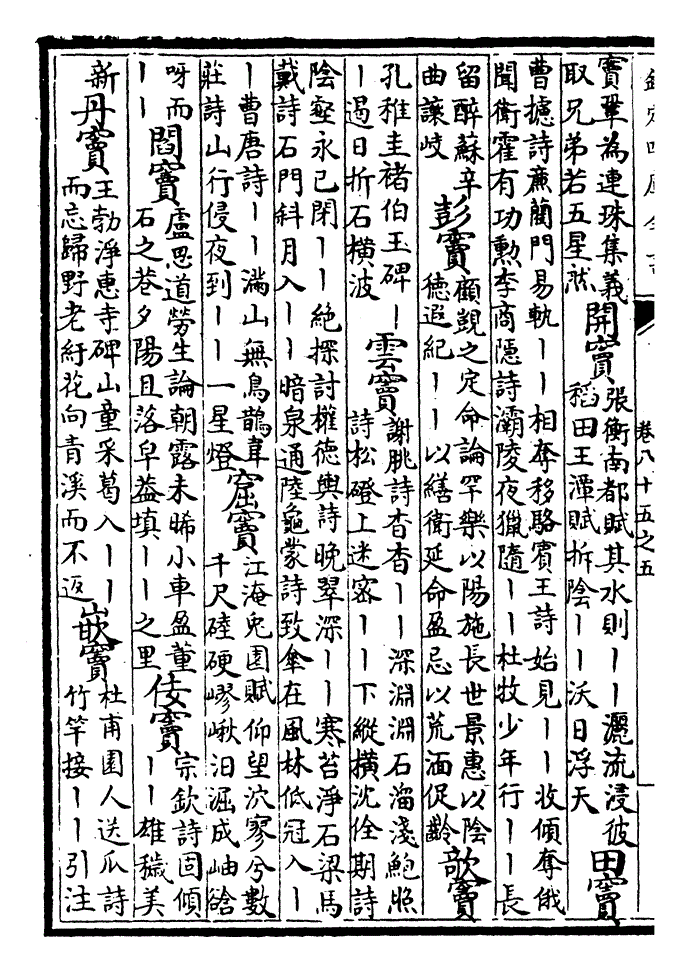 欽定四庫全書
卷八十五之五
竇羣為連珠集義
取兄弟若五星然
開竇
張衡南都賦其水則丨丨灑流浸彼
稻田王渾賦拆陰丨丨沃日浮天
田竇
曹攄詩亷藺門易軌丨丨相奪移駱賓王詩始見丨丨收傾奪俄
聞衛霍有功勲李商隱詩灞陵夜獵隨丨丨杜牧少年行丨丨長
留醉蘇辛
曲讓岐
彭竇
顧覬之定命論罕樂以陽施長世景惠以陰
德遐紀丨丨以繕衛延命盈忌以荒湎促齡
歆竇
孔稚圭褚伯玉碑丨
丨遏日折石横波
雲竇
謝朓詩杳杳丨丨深淵淵石溜淺鮑照
詩松磴上迷密丨丨下縱横沈佺期詩
陰壑永已閉丨丨絶探討權德輿詩晚翠深丨丨寒苔淨石梁馬
戴詩石門斜月入丨丨暗泉通陸龜蒙詩致傘在風林低冠入丨
丨曹唐詩丨丨滿山無鳥鵲韋
莊詩山行侵夜到丨丨一星燈
窟竇
江淹兎園賦仰望泬寥兮數
千尺硬嵺汩淈成岫
呀而
丨丨
閻竇
盧思道勞生論朝露未晞小車盈董
石之巷夕陽且落皁葢填丨丨之里
佞竇
宗欽詩固傾
丨丨雄穢美
新
丹竇
王勃淨惠寺碑山童采葛入丨丨
而忘歸野老紆花向青溪而不返
嵌竇
杜甫園人送瓜詩
竹竿接丨丨引注